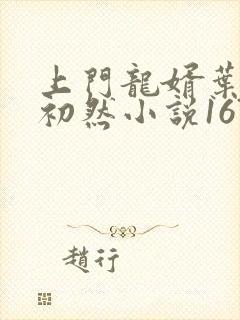 上門龍婿葉
初然小説16
趙行